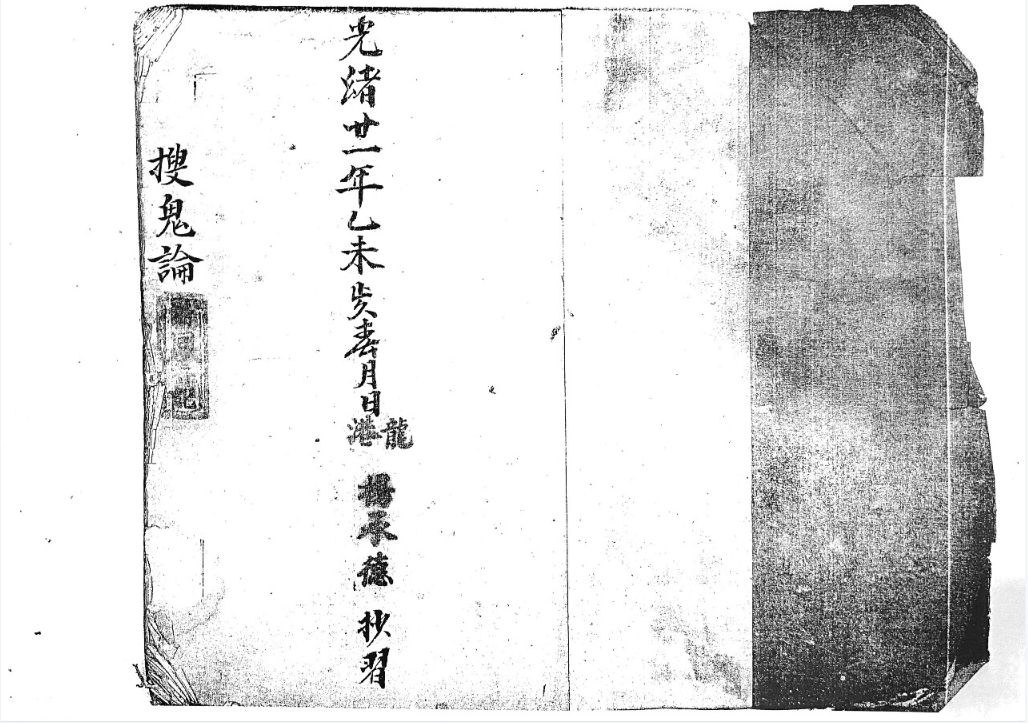 光緒廿一年乙未歲春月日龍港 楊承德 抄習
搜鬼論